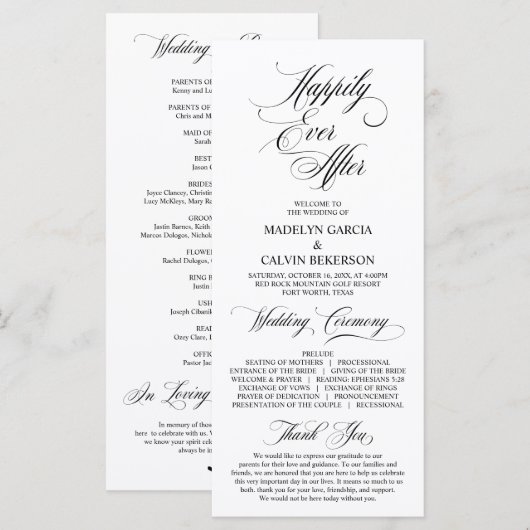 Wedding
PARENTS OF
Kenny and Lu
PARENTS OF
Chris and Ma
MAID OF
Sarah
BEST
Jason
BRIDES
Joyce Clancey, Christin
Lucy McKleys, Mary Ro
GROOM
Justin Barnes, Keith
Marcos Dologos, Nichola
FLOWER
Rachel Dologos,
RING B
Justin
USH
Joseph Cibanink
READ
Ozzy Clare,
OFFIC
Pastor Jac
In Loving
In memory of those
here to celebrate with us. W
know your spirit celebr
always be in
Happily
Ever
After
WELCOME TO
THE WEDDING OF
MADELYN GARCIA
&
CALVIN BEKERSON
SATURDAY, OCTOBER 16, 20XX, AT 4:00PM
RED ROCK MOUNTAIN GOLF RESORT
FORT WORTH, TEXAS
Wedding Ceremony
PRELUDE
SEATING OF MOTHERS | PROCESSIONAL
ENTRANCE OF THE BRIDE | GIVING OF THE BRIDE
WELCOME & PRAYER | READING: EPHESIANS 5:28
EXCHANGE OF VOWS | EXCHANGE OF RINGS
PRAYER OF DEDICATION | PRONOUNCEMENT
PRESENTATION OF THE COUPLE | RECESSIONAL
Thank You
We would like to express our gratitude to our
parents for their love and guidance. To our families and
friends, we are honored that you are here to help us celebrate
this very important day in our lives. It means so much to us
both. thank you for your love, friendship, and support.
We would not be here today without you.